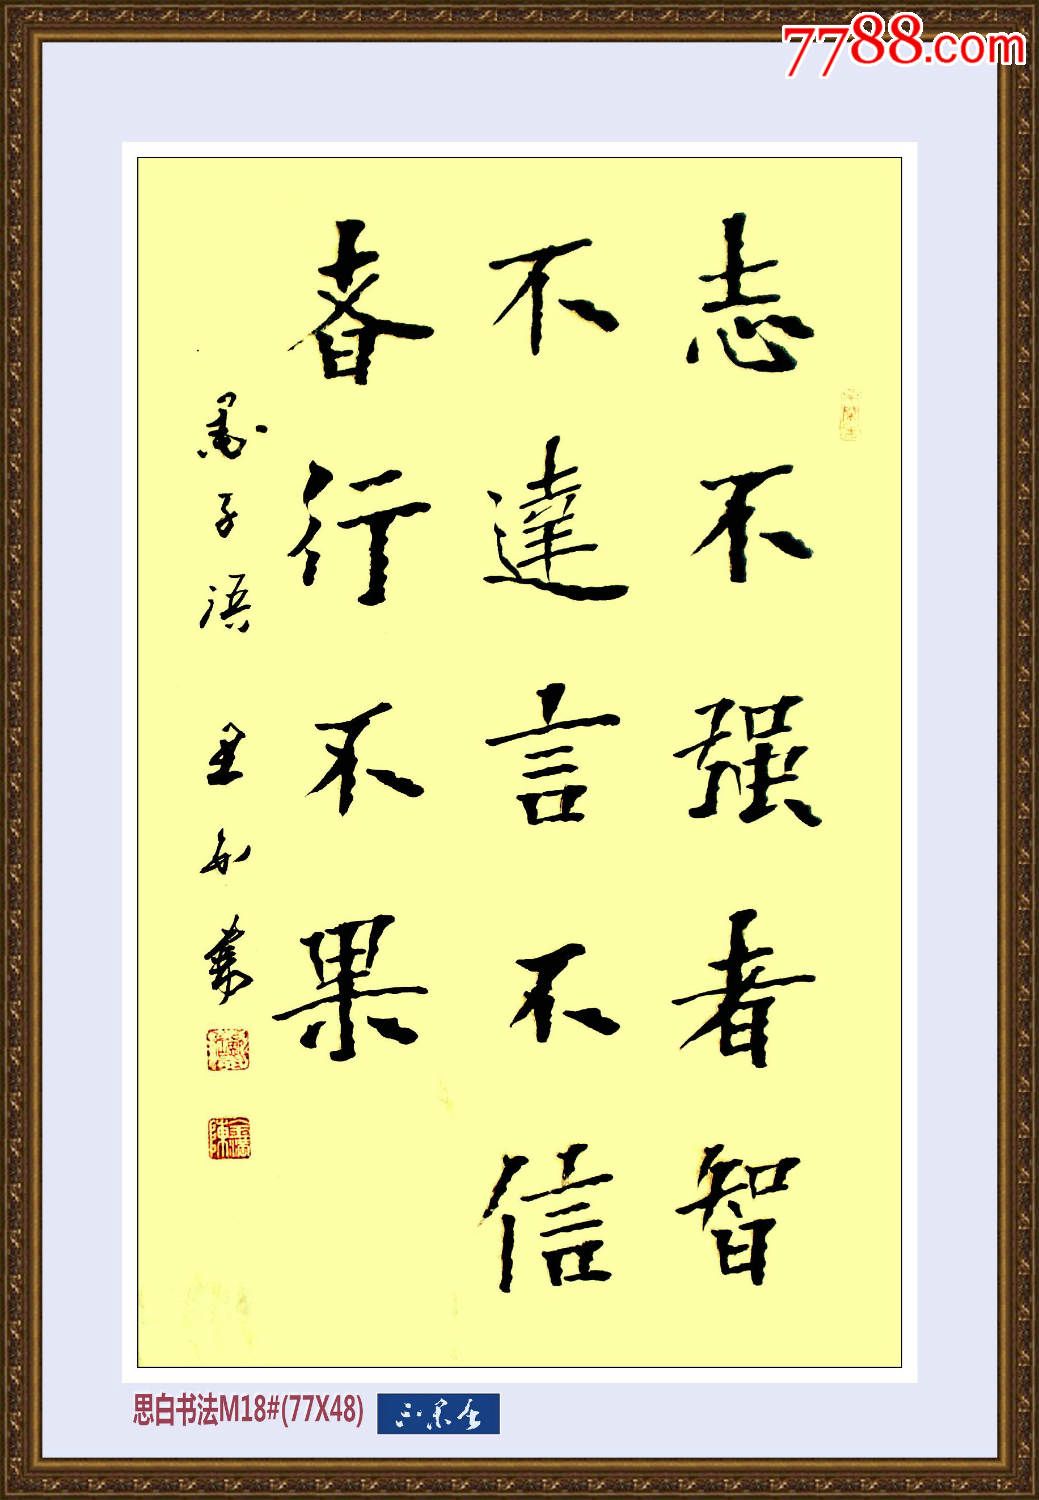 7788.com
志不强者智
不達言不信
者行不果
墨子语
思白书法M18#(77X48)